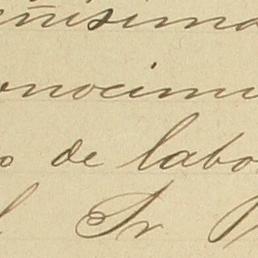 ñisima
onocimi
o de labo
l Sr